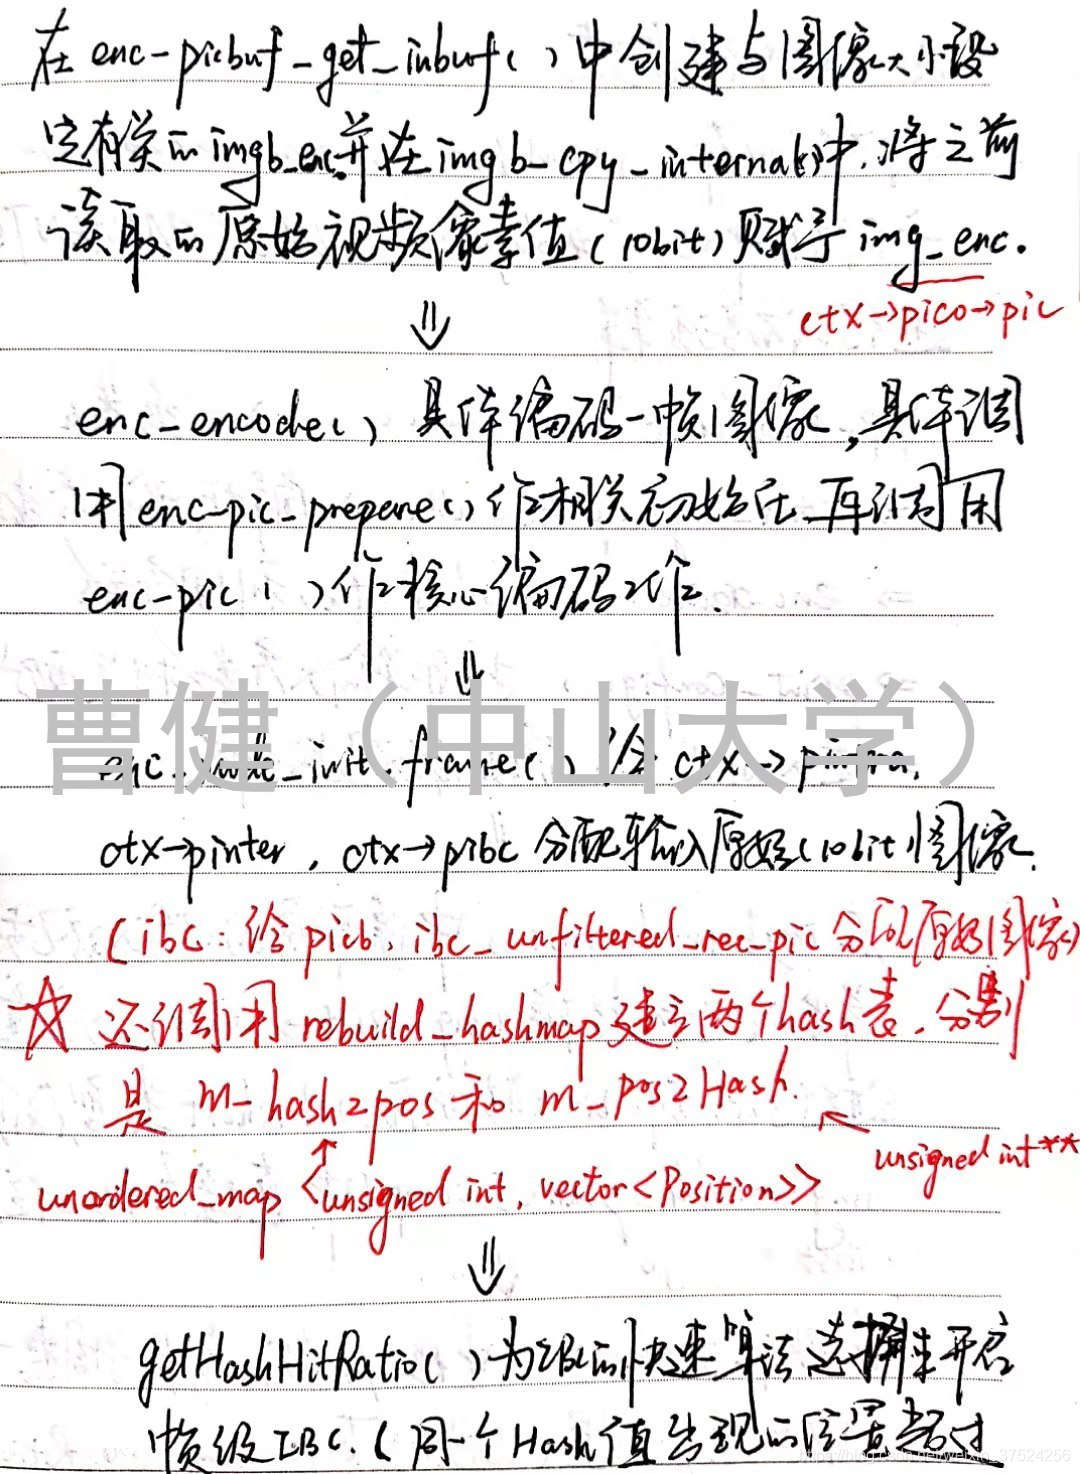 在 enc-picbuf_get_inbuf( ) 中创建与图像大小设
定有关的 imgb_enc, 并在 imgb_cpy_internal( )中, 将之前
读取的原始视频像素值(10bit)赋予 img_enc.
ctx→pico→pic
⇓
enc_encode( ) 具体编码一帧图像, 具体调
用 enc_pic_prepare( ) 作相关初始化, 再调用
enc-pic( ) 作核心编码工作.
⇓
曹健（中山大学）
enc_mode_init_frame( ) 给 ctx→pintra,
ctx→pinter, ctx→pibc 分配输入原始(10bit)图像.
(ibc: 给 picb, ibc_unfiltered_rec_pic 分配原始图像)
☆ 还调用 rebuild_hashmap 建立两个hash表, 分别
是 m_hash2pos 和 m_pos2Hash.
↑ ↖ unsigned int**
unordered_map <unsigned int, vector<Position>>
⇓
getHashHitRatio( ) 为IBC的快速算法选择来开启
帧级IBC. (同一个Hash值出现的位置超过